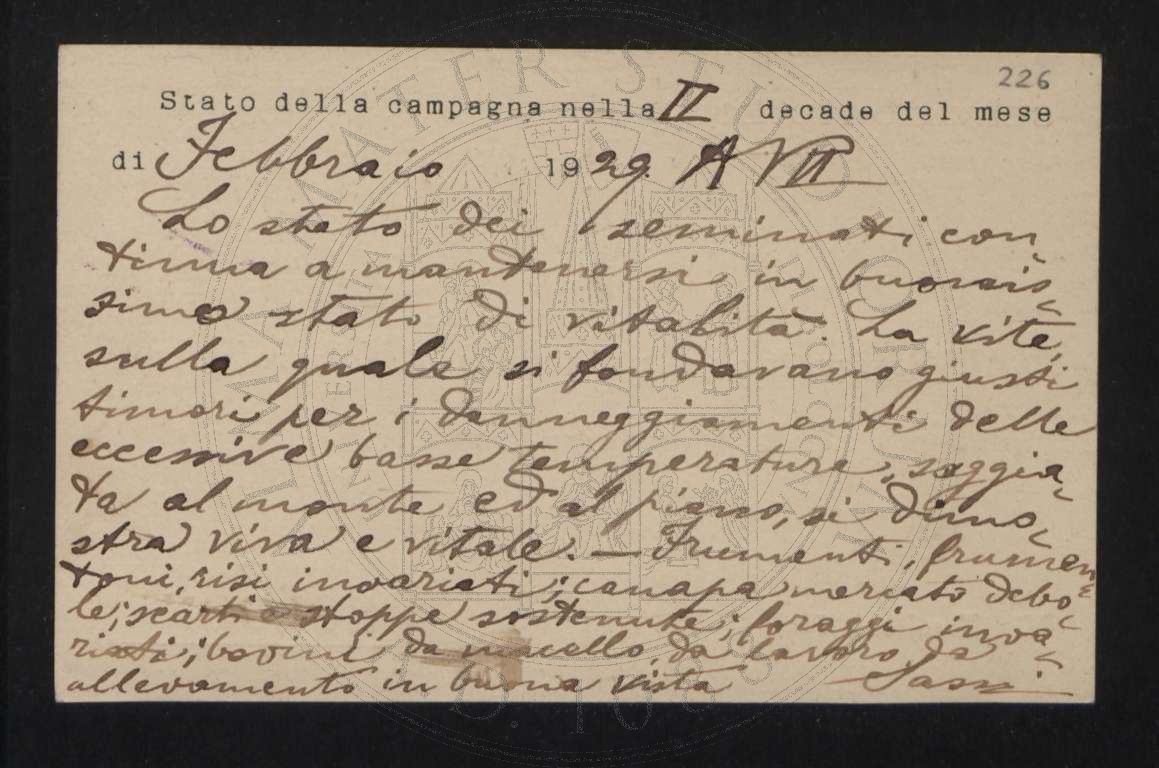 226
Stato della campagna nella II decade del mese
di Febbraio 1929. A VII
Lo stato dei seminati con
tinua a mantenersi in buonis-
simo stato di vitalità. La vite,
sulla quale si fondavano giusti
timori per i danneggiamenti delle
eccessive basse temperature, saggia-
ta al monte ed al piano, si dimo-
stra viva e vitale. — Frumenti, frumen-
toni, risi invariati; canapa mercato debo-
le; scarti e stoppe sostenute; foraggi inva-
riati; bovini da macello, da lavoro, da
allevamento in buona vista Sassi